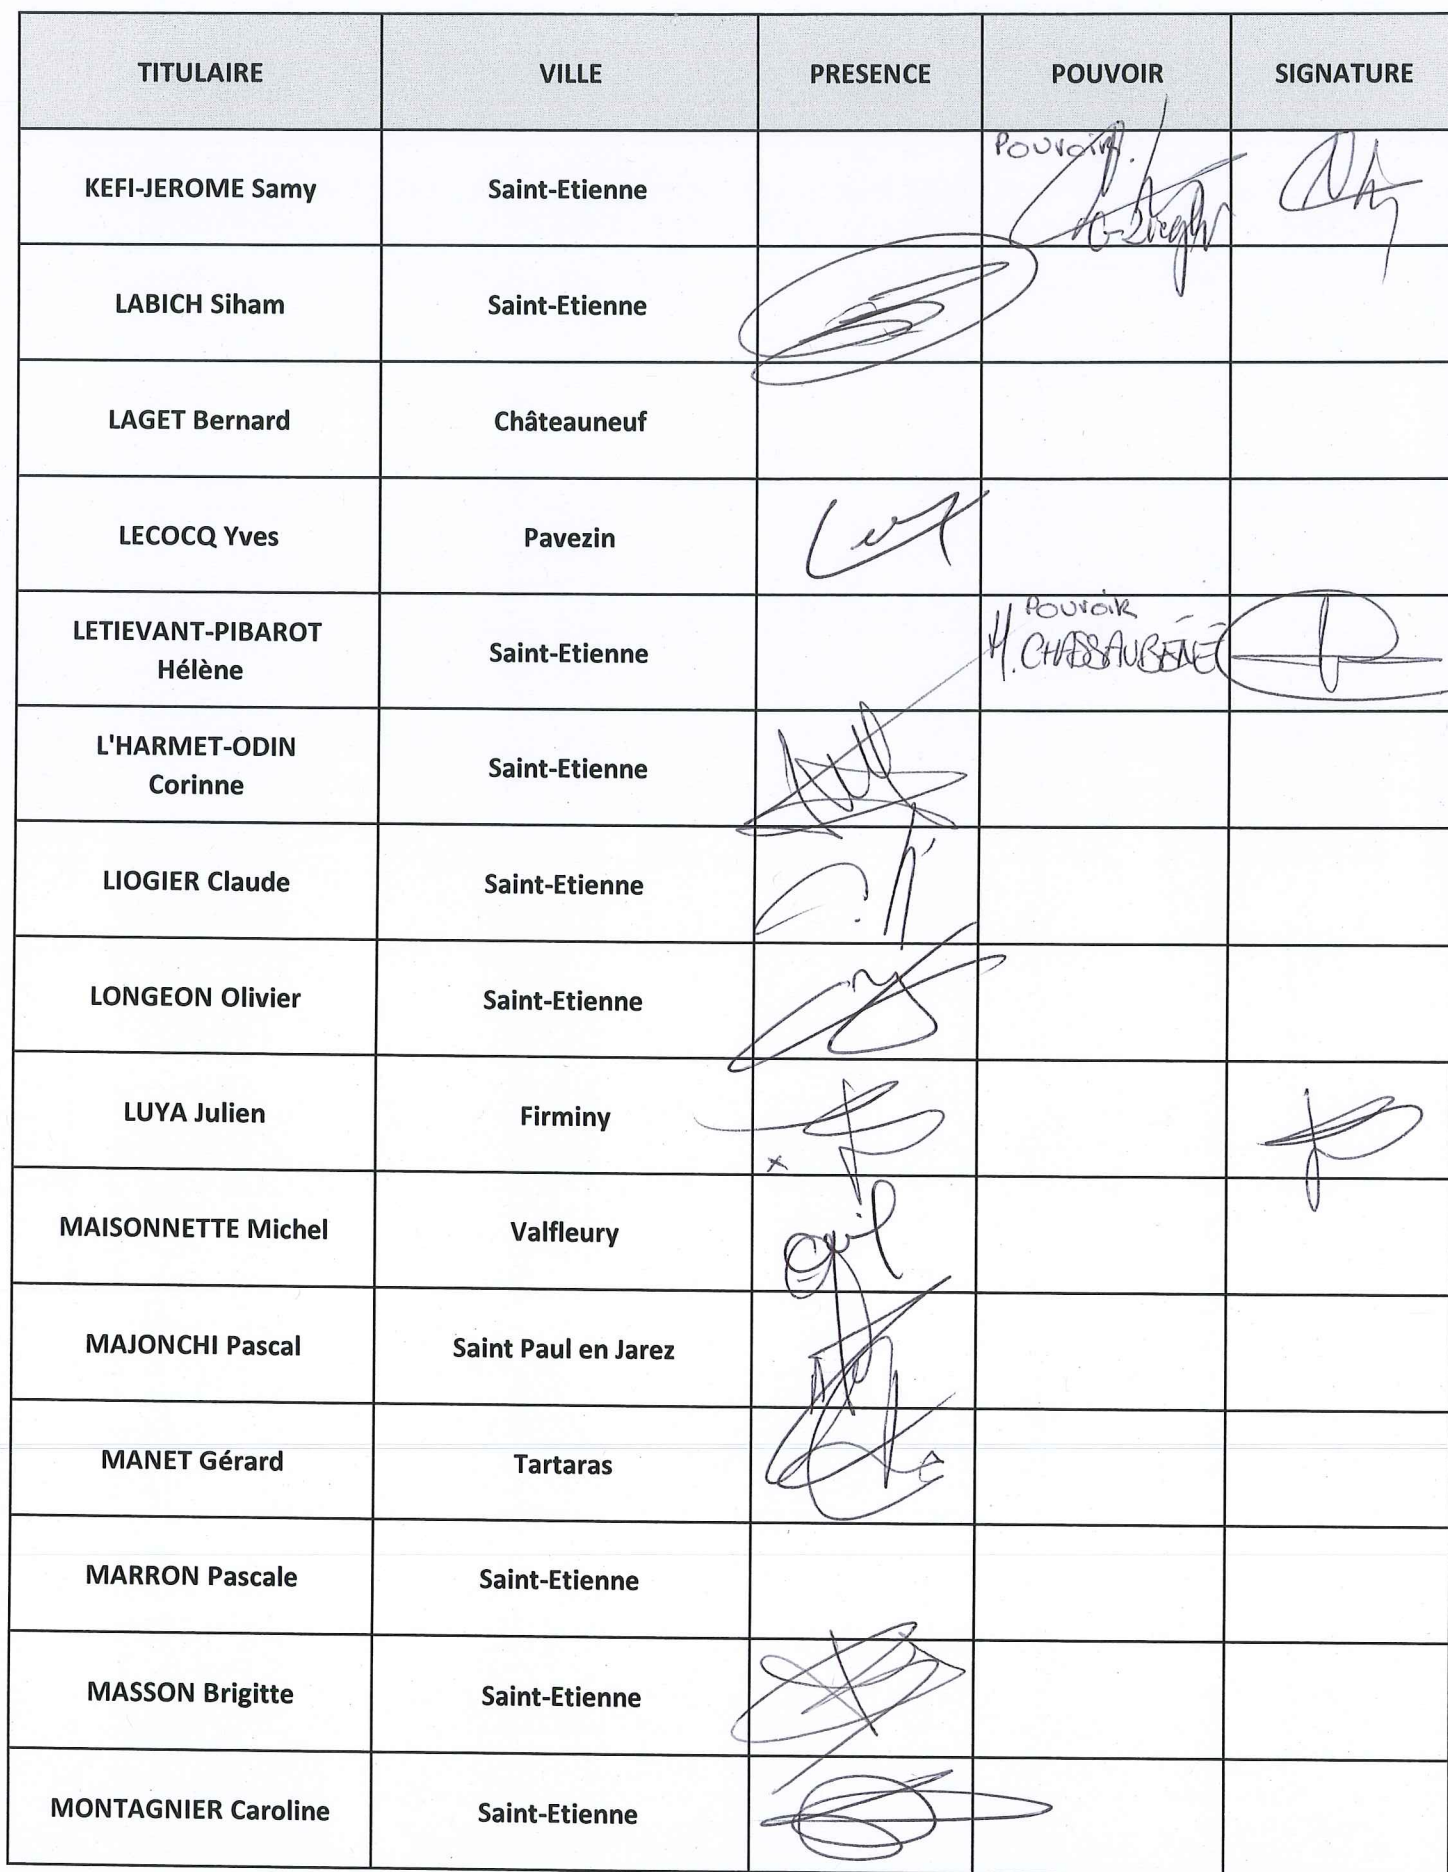 TITULAIRE VILLE PRESENCE POUVOIR SIGNATURE
KEFI-JEROME Samy Saint-Etienne Pouvoir
LABICH Siham Saint-Etienne
LAGET Bernard Châteauneuf
LECOCQ Yves Pavezin
LETIEVANT-PIBAROT
Hélène Saint-Etienne Pouvoir
M. CHASSAUBÉNÉ
L'HARMET-ODIN
Corinne Saint-Etienne
LIOGIER Claude Saint-Etienne
LONGEON Olivier Saint-Etienne
LUYA Julien Firminy x
MAISONNETTE Michel Valfleury
MAJONCHI Pascal Saint Paul en Jarez
MANET Gérard Tartaras
MARRON Pascale Saint-Etienne
MASSON Brigitte Saint-Etienne
MONTAGNIER Caroline Saint-Etienne